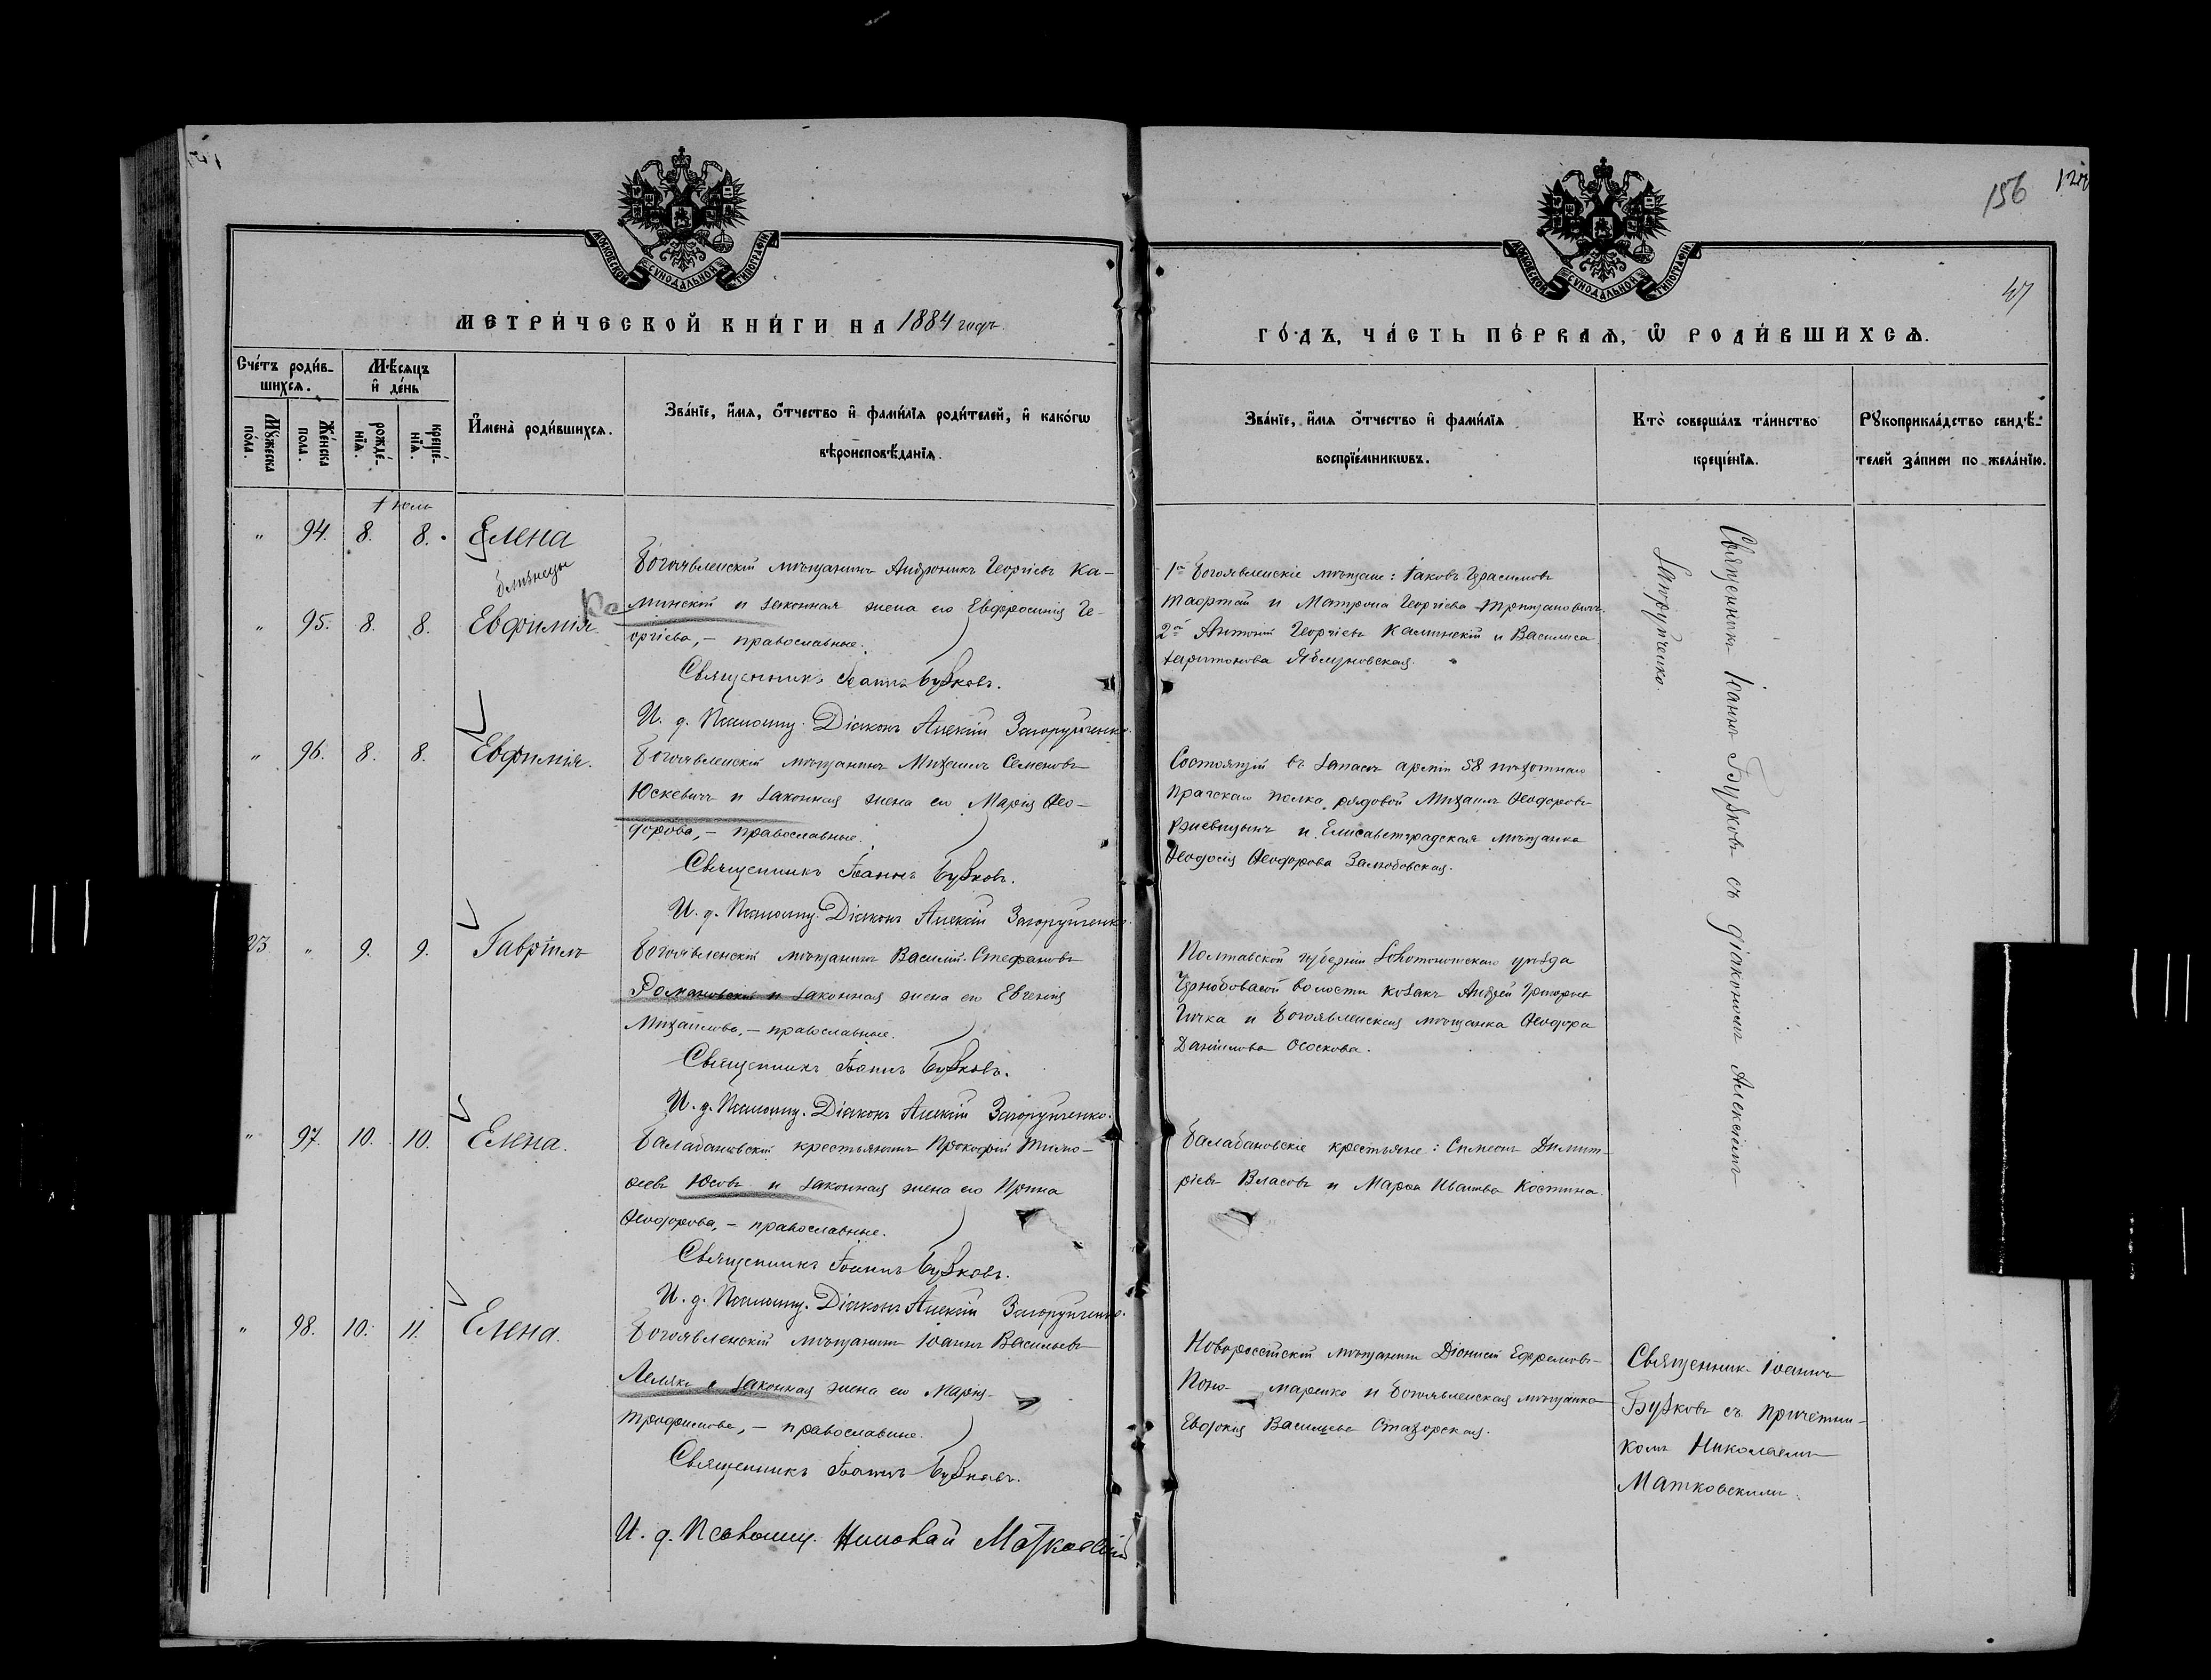 156
47
МОСКОВСКОЙ СѴНОДАЛЬНОЙ ТИПОГРАФІИ
МОСКОВСКОЙ СѴНОДАЛЬНОЙ ТИПОГРАФІИ
МЕТРИ́ЧЕСКОЙ КНИ́ГИ НА 1884 годъ
ГО́ДЪ, ЧА́СТЬ ПЕ́РВАѦ, Ѿ РОДИ́ВШИХСѦ.
Сче́тъ роди́в-
шихсѧ.
Мѣ́сѧцъ
и҆ де́нь
Мꙋ́жеска по́ла.
Же́нска пола.
рожде́-
нїѧ.
креще́-
нїѧ.
И҆мена̀ роди́вшихсѧ.
Зва́нїе, и҆́мѧ, о҆́тчество и҆ фами́лїѧ роди́телей, и҆ како́гѡ
вѣроисповѣ́данїѧ.
Зва́нїе, и҆́мѧ о҆́тчество и҆ фами́лїѧ
воспрїе́мникѡвъ.
Кто̀ соверша́лъ та́инство
креще́нїѧ.
Рꙋкоприкла́дство свидѣ́-
телей за́писи по жела́нїю.
Іюль
" 94. 8. 8. Елена
близнецы
" 95. 8. 8. Евфимія
Богоявленскій мѣщанинъ Андроникъ Георгіевъ Ка-
минскій и законная жена его Евфросинія Ге-
оргіева, – православные.
Священникъ Іоаннъ Бузковъ.
И. д. Псаломщ. Діаконъ Алексій Загоруйченко.
1й Богоявленскіе мѣщане: Іаковъ Герасимовъ
и Матрона Георгіева
2й Антоній Георгіевъ Каминскій и Василиса
Харитонова Яблуновская.
Священникъ Іоаннъ Бузковъ съ діакономъ Алексіемъ
Загоруйченко.
" 96. 8. 8. Евфимія.
Богоявленскій мѣщанинъ Михаилъ Семеновъ
Юскевичъ и законная жена его Марія Ѳео-
дорова, – православные.
Священникъ Іоаннъ Бузковъ.
И. д. Псаломщ. Діаконъ Алексій Загоруйченко.
Состоящій въ запасѣ арміи 58 пѣхотнаго
Прагскаго полка рядовой Михаилъ Ѳеодоровъ
и Елисаветградская мѣщанка
Ѳеодосія Ѳеодорова Залюбовская.
23 " 9. 9. Гавріилъ
Богоявленскій мѣщанинъ Василій Стефановъ
Романовскій и законная жена его Евгенія
Михаилова, – православные.
Священникъ Іоаннъ Бузковъ.
И. д. Псаломщ. Діаконъ Алексій Загоруйченко.
Полтавской губерніи Золотоношскаго уѣзда
волости козакъ Андрей Григорьевъ
Гичка и Богоявленская мѣщанка Ѳеодора
Даніилова Ососкова.
" 97. 10. 10. Елена.
Балабановскій крестьянинъ Прокофій Тимо-
ѳеевъ Юсовъ и законная жена его Ирина
Ѳеодорова, – православные.
Священникъ Іоаннъ Бузковъ.
И. д. Псаломщ. Діаконъ Алексій Загоруйченко.
Балабановскіе крестьяне: Симеонъ Димит-
ріевъ Власовъ и Марѳа Иванова Костина.
" 98. 10. 11. Елена.
Богоявленскій мѣщанинъ Іоаннъ Васильевъ
Лемяко и законная жена его Марія
Трофимова, – православные.
Священникъ Іоаннъ Бузковъ.
И. д. Псаломщ. Николай Матковскій
Новороссійскій мѣщанинъ Діонисій Ефремовъ
Поно- маренко и Богоявленская мѣщанка
Евдокія Васильева
Священникъ Іоаннъ
Бузковъ съ причетни-
комъ Николаемъ
Матковскимъ.